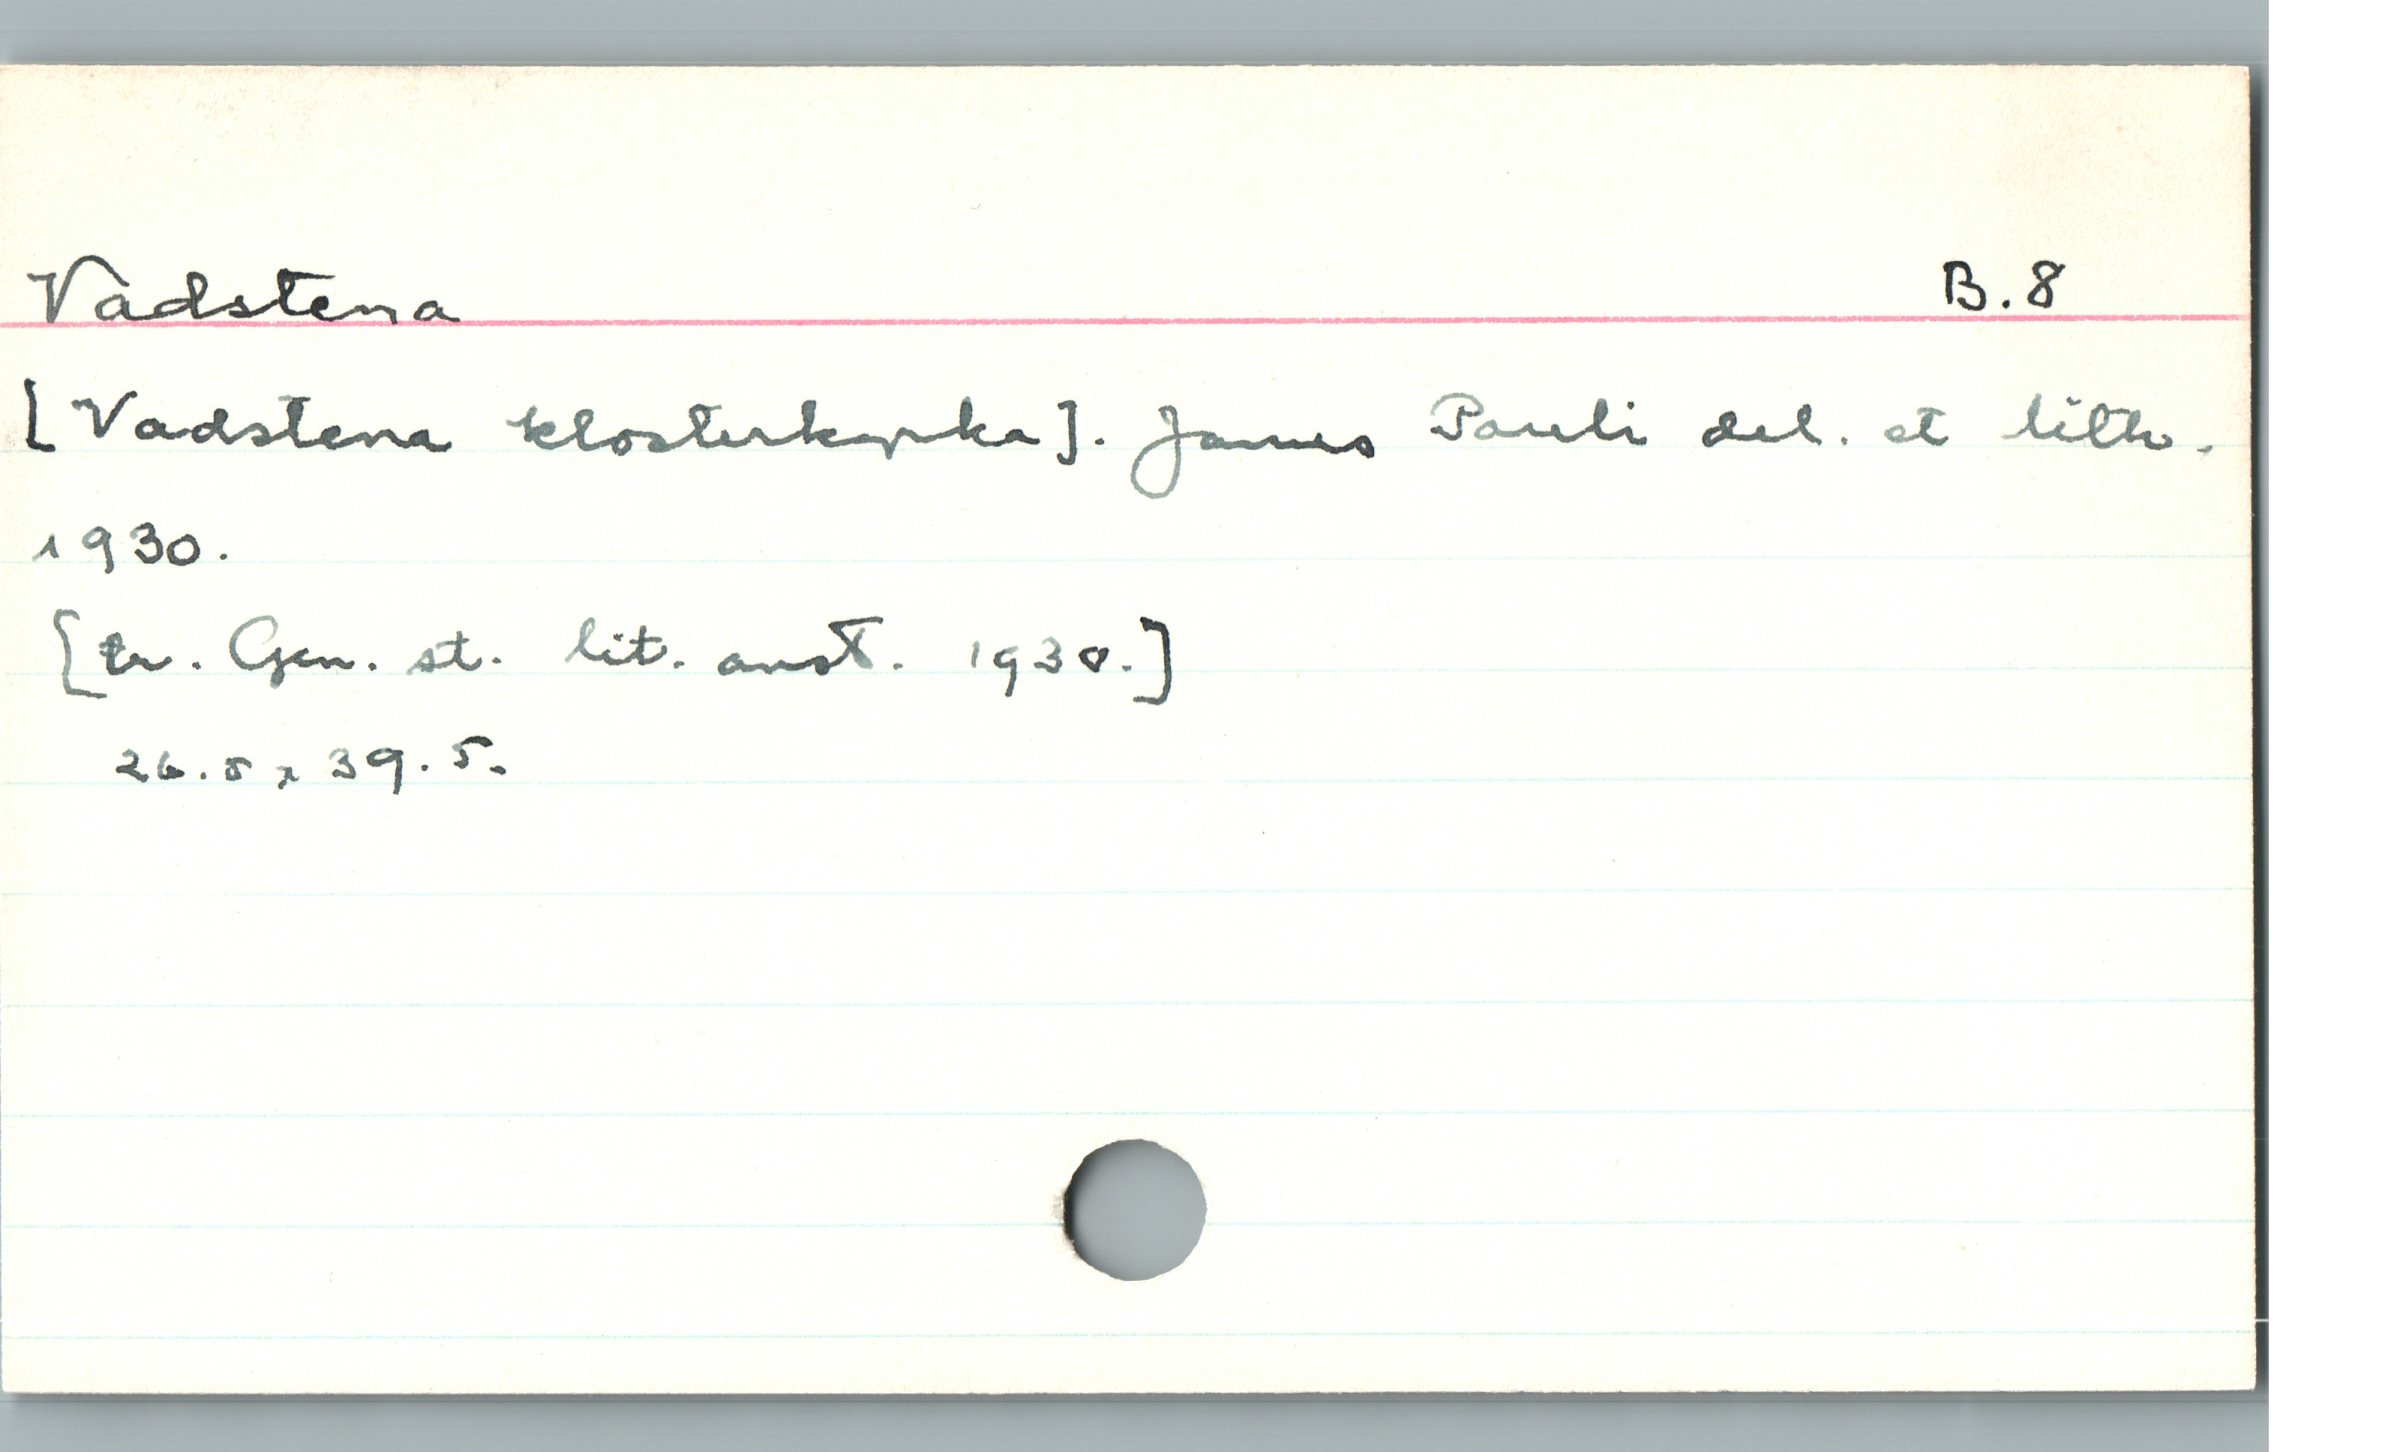 Vadstena B.8
[Vadstena klosterkyrka]. James Pauli del. et lith.
1930.
[tr. Gen. st. lit. anst. 1930.]
26.5 x 39.5.